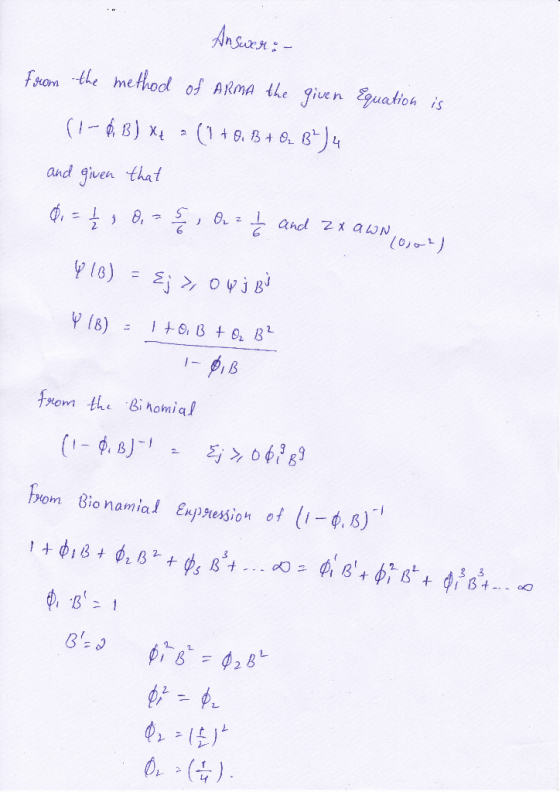 Answer:-
From the method of ARMA the given Equation is
(1 - ϕ₁B) xₜ = (1 + θ₁B + θ₂ B²) 4
and given that
ϕ₁ = 1/2, θ₁ = 5/6, θ₂ = 1/6 and Z x a WN (0,σ²)
Ψ(B) = Σj ≥, 0 Ψ j Bʲ
Ψ(B) = (1 + θ₁B + θ₂ B²)/(1 - ϕ₁B)
From the Binomial
(1 - ϕ₁B)⁻¹ = Σj ≥, 0 ϕ₁⁹ B⁹
From Bionamial Expression of (1 - ϕ₁B)⁻¹
1 + ϕ₁B + ϕ₂B² + ϕ₃ B³ + ... ∞ = ϕ₁¹B¹ + ϕ₁²B² + ϕ₁³B³ + ... ∞
ϕ₁ B¹ = 1
B¹ = 2
ϕ₁² B² = ϕ₂ B²
ϕ₁² = ϕ₂
ϕ₂ = (1/2)²
ϕ₂ = (1/4).